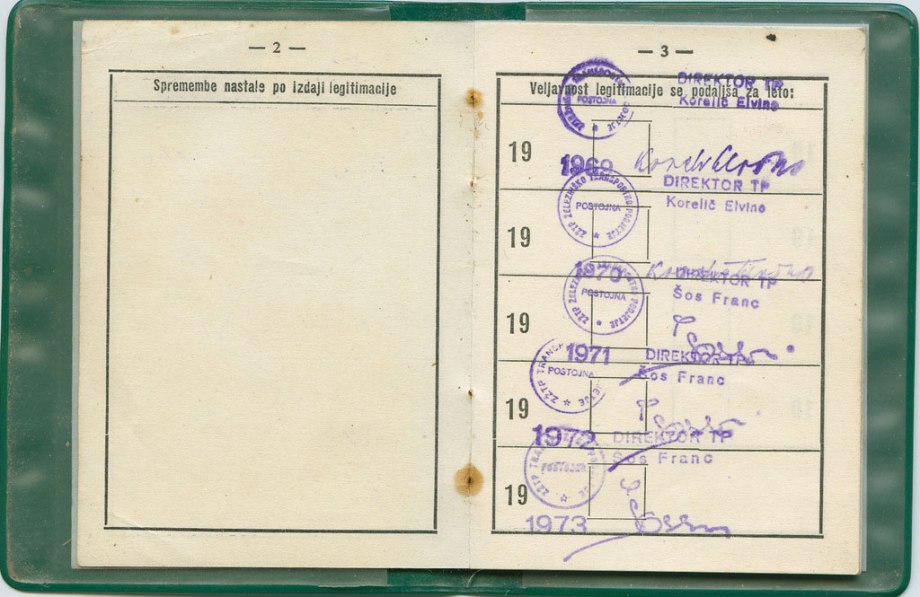 — 2 —
Spremembe nastale po izdaji legitimacije
— 3 —
Veljavnost legitimacije se podaljša za leto:
DIREKTOR TP
Korelič Elvino
POSTOJNA
19
1969
DIREKTOR TP
Korelič Elvino
ŽŽTP ŽELEZNIŠKO TRANSPORTNO PODJETJE
POSTOJNA
19
1970
DIREKTOR TP
Šos Franc
POSTOJNA
19
1971
DIREKTOR TP
Šos Franc
POSTOJNA
19
1972
DIREKTOR TP
Šos Franc
POSTOJNA
19
1973